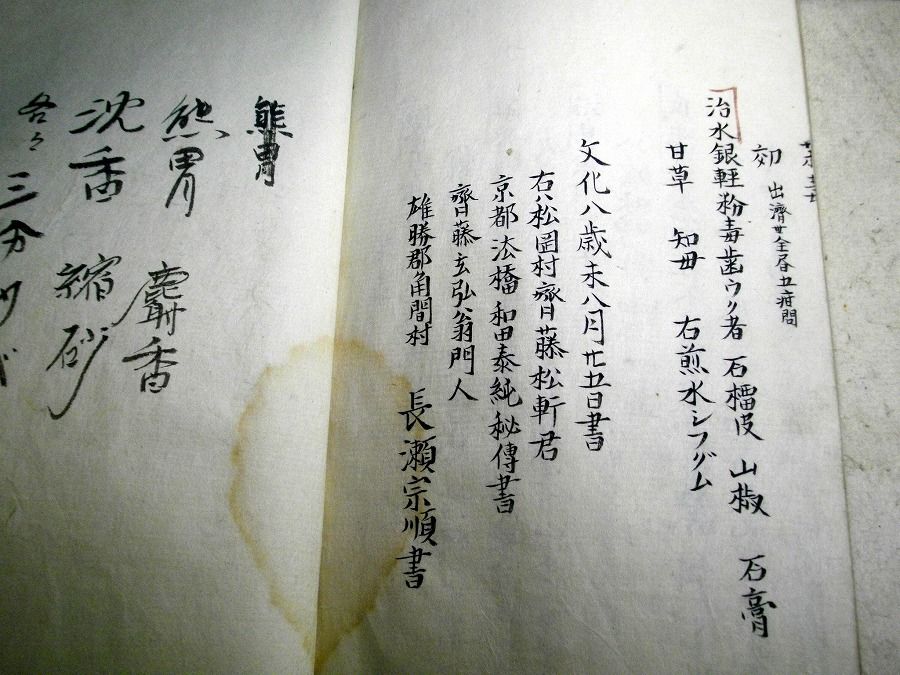 出濟世全书五疳問
治水銀輕粉毒歯ウク者 石榴皮 山椒 石膏
甘草 知母 右煎水シフグム
文化八歳未八月廿五日書
右ハ松岡村齊藤松軒君
京都法橋和田泰純秘傳書
齊藤玄弘翁門人
雄勝郡角間村 長瀬宗順書
熊胃
熊胃 麝香
沈香 縮砂
各々三分